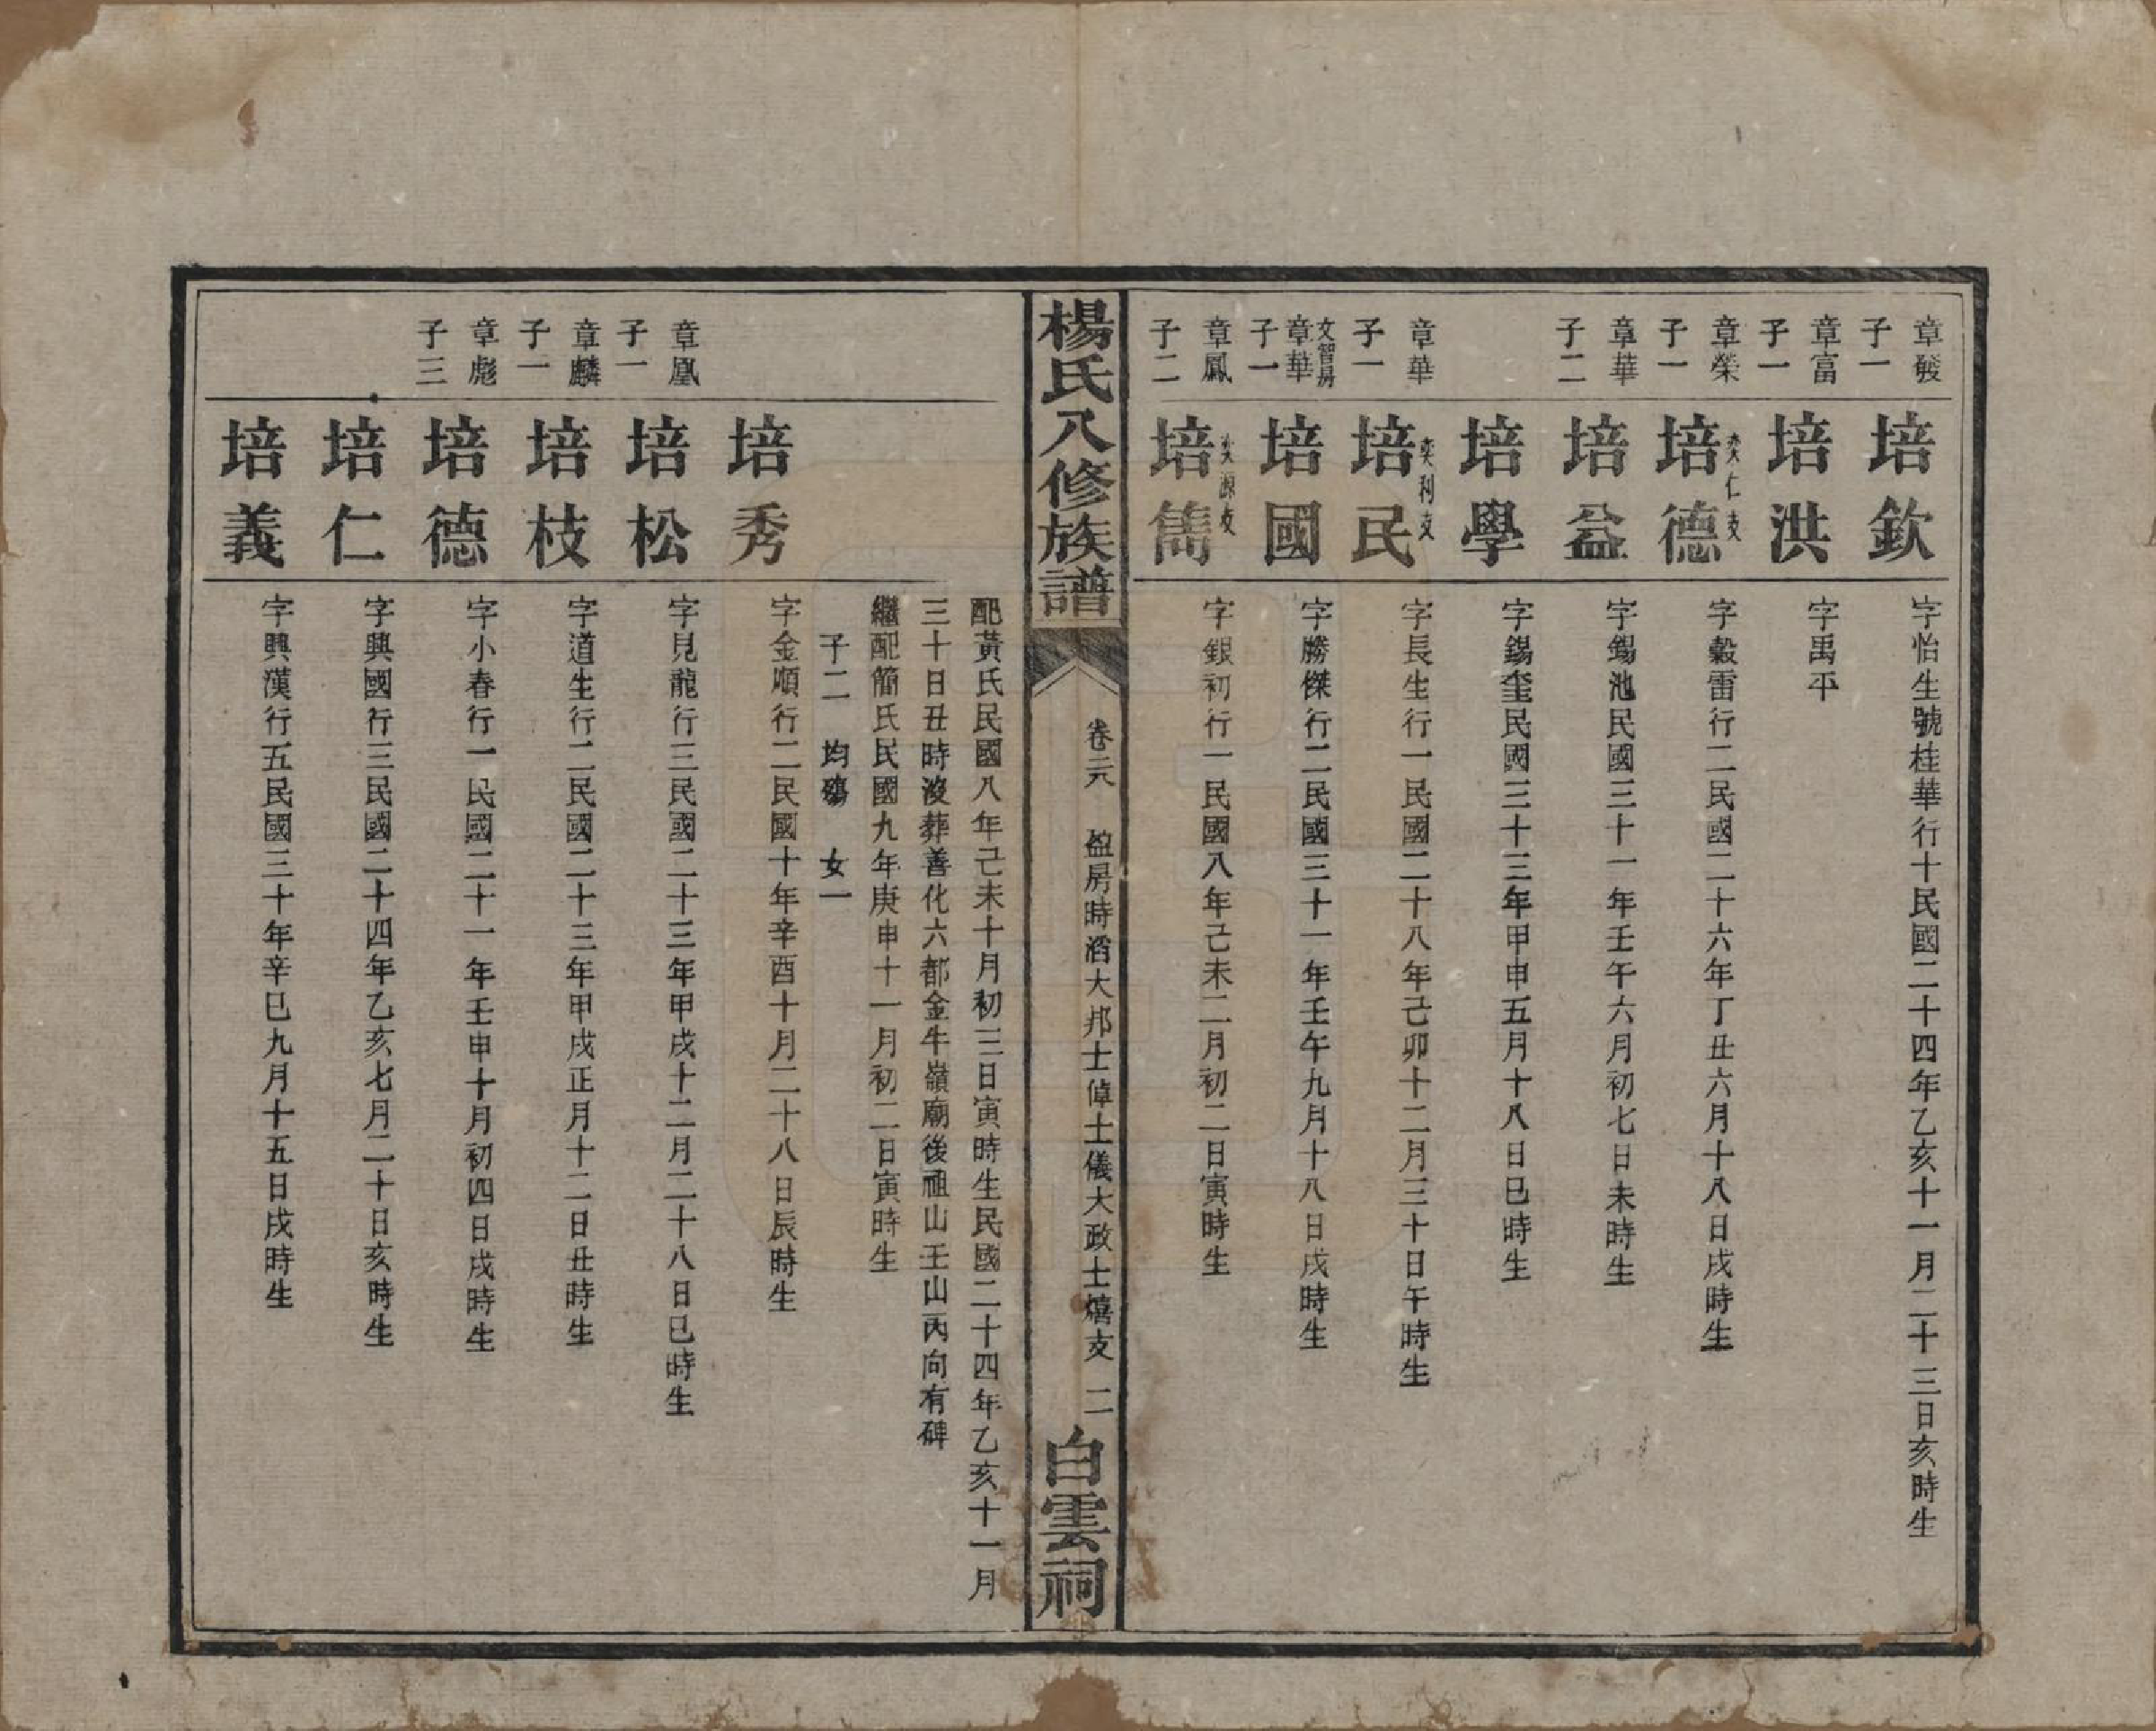 章發
子一
培欽
字怡生號桂華行十民國二十四年乙亥十一月二十三日亥時生
章富
子一
培洪
字禹平
章榮
子一
奕仁支
培德
字穀雷行二民國二十六年丁丑六月十八日戌時生
章華
子二
培益
字錫池民國三十一年壬午六月初七日未時生
培學
字錫奎民國三十三年甲申五月十八日巳時生
章華
子一
奕利支
培民
字長生行一民國二十八年己卯十二月三十日午時生
文智房
章華
子一
培國
字勝傑行二民國三十一年壬午九月十八日戌時生
章鳳
子二
奕源支
培雋
字銀初行一民國八年己未二月初二日寅時生
楊氏八修族譜
卷二六 盈房時滔大邦士倬士儀大政士熺支 二
白雲祠
配黃氏民國八年己未十月初三日寅時生民國二十四年乙亥十一月
三十日丑時歿葬善化六都金牛嶺廟後祖山壬山丙向有碑
繼配簡氏民國九年庚申十一月初二日寅時生
子二 均殤 女一
培秀
字金順行二民國十年辛酉十月二十八日辰時生
章凰
子一
培松
字見龍行三民國二十三年甲戌十二月二十八日巳時生
章麟
子一
培枝
字道生行二民國二十三年甲戌正月十二日丑時生
章彪
子三
培德
字小春行一民國二十一年壬申十月初四日戌時生
培仁
字興國行三民國二十四年乙亥七月二十日亥時生
培義
字興漢行五民國三十年辛巳九月十五日戌時生